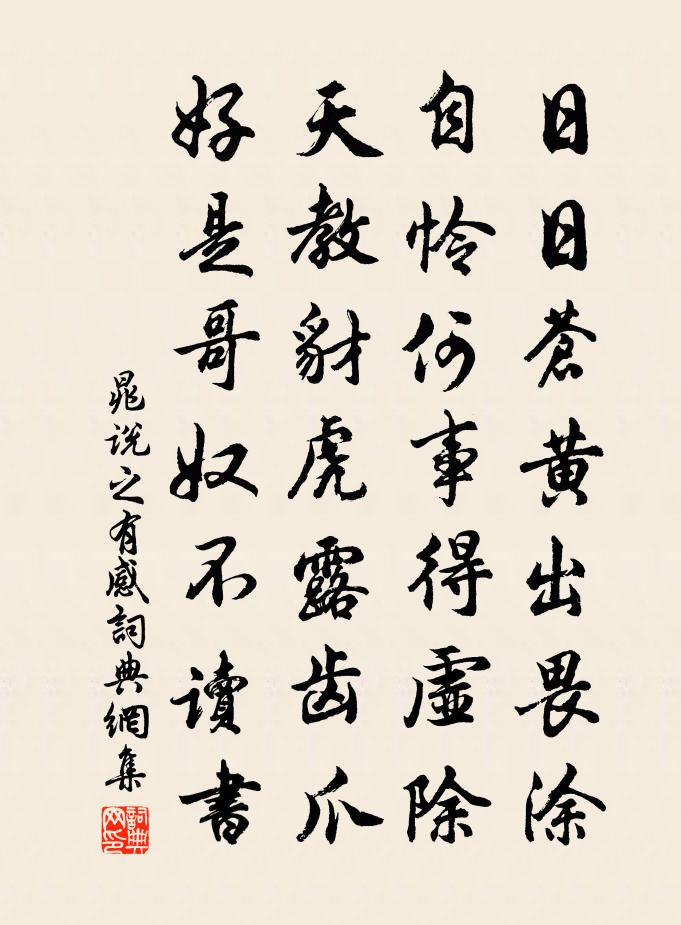 日日蒼黄出畏涂
自怜何事得虛除
天教豺虎露齿爪
好是哥奴不讀書
晁说之有感詞典網集
詞典网印